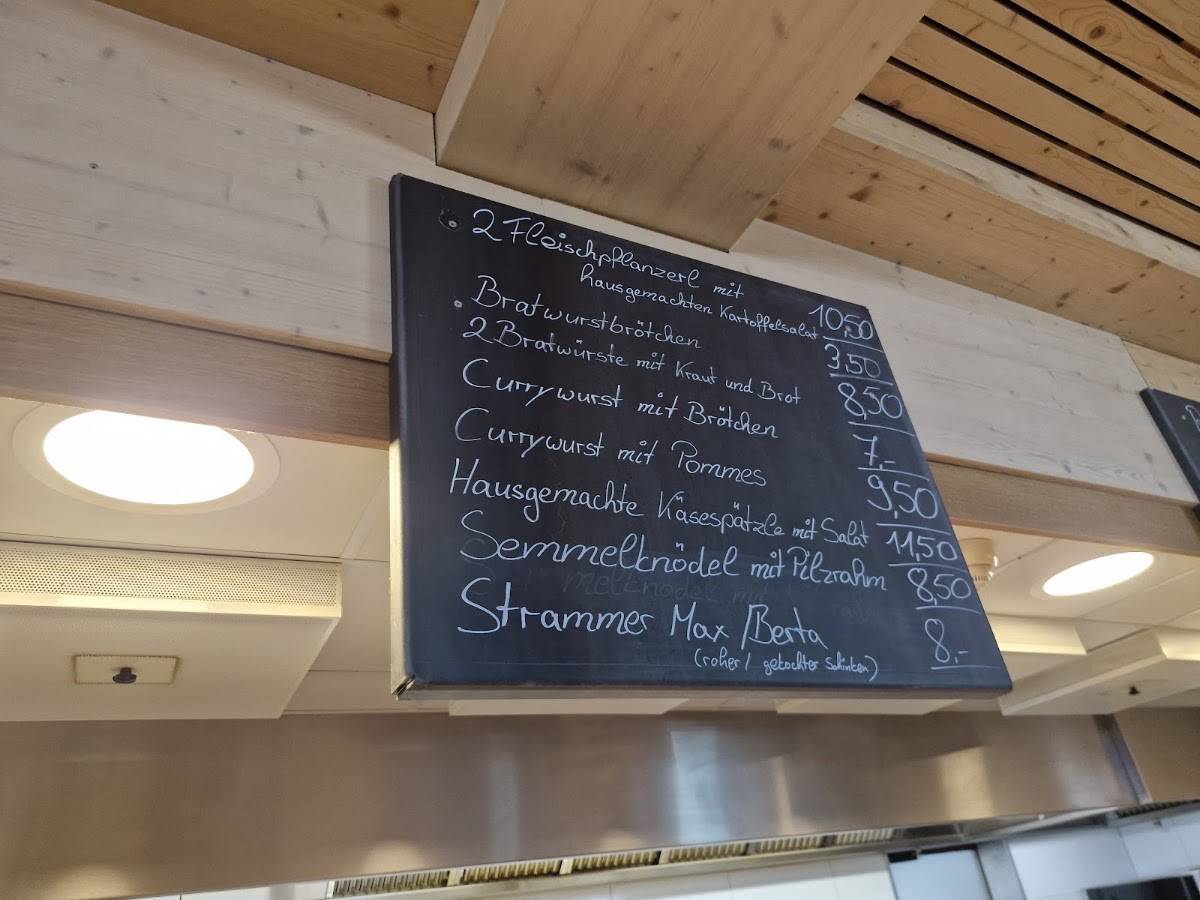 2 Fleischpflanzerl mit
hausgemachten Kartoffelsalat 10,50
Bratwurstbrötchen 3,50
2 Bratwürste mit Kraut und Brot 8,50
Currywurst mit Brötchen 7,-
Currywurst mit Pommes 9,50
Hausgemachte Käsespätzle mit Salat 11,50
Semmelknödel mit Pilzrahm 8,50
Strammer Max / Berta 8,-
(roher / gekochter Schinken)